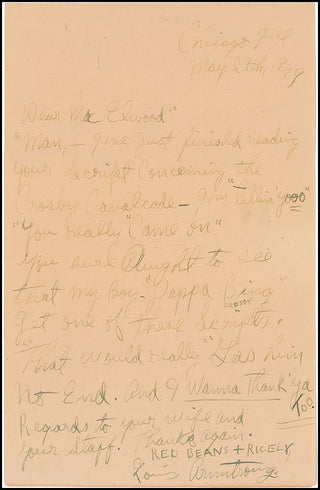 Chicago Ill
May 27th, 1949
Dear Mac Elwood"
"Man, – I've Just finished reading
your Script Concerning "the
Crosby Cavalcade – I'm tellin' yooo"
"You really "Came on"
You sure Aought to see
that my Boy "Pappa Bing"
CROSBY
get one of these Scripts.
"That would really "Gas him
No End. And I Wanna thank' ya
Too.
Regards to your Wife and
your Staff. Thanks again.
RED BEANS + RICELY,
Louis Armstrong.